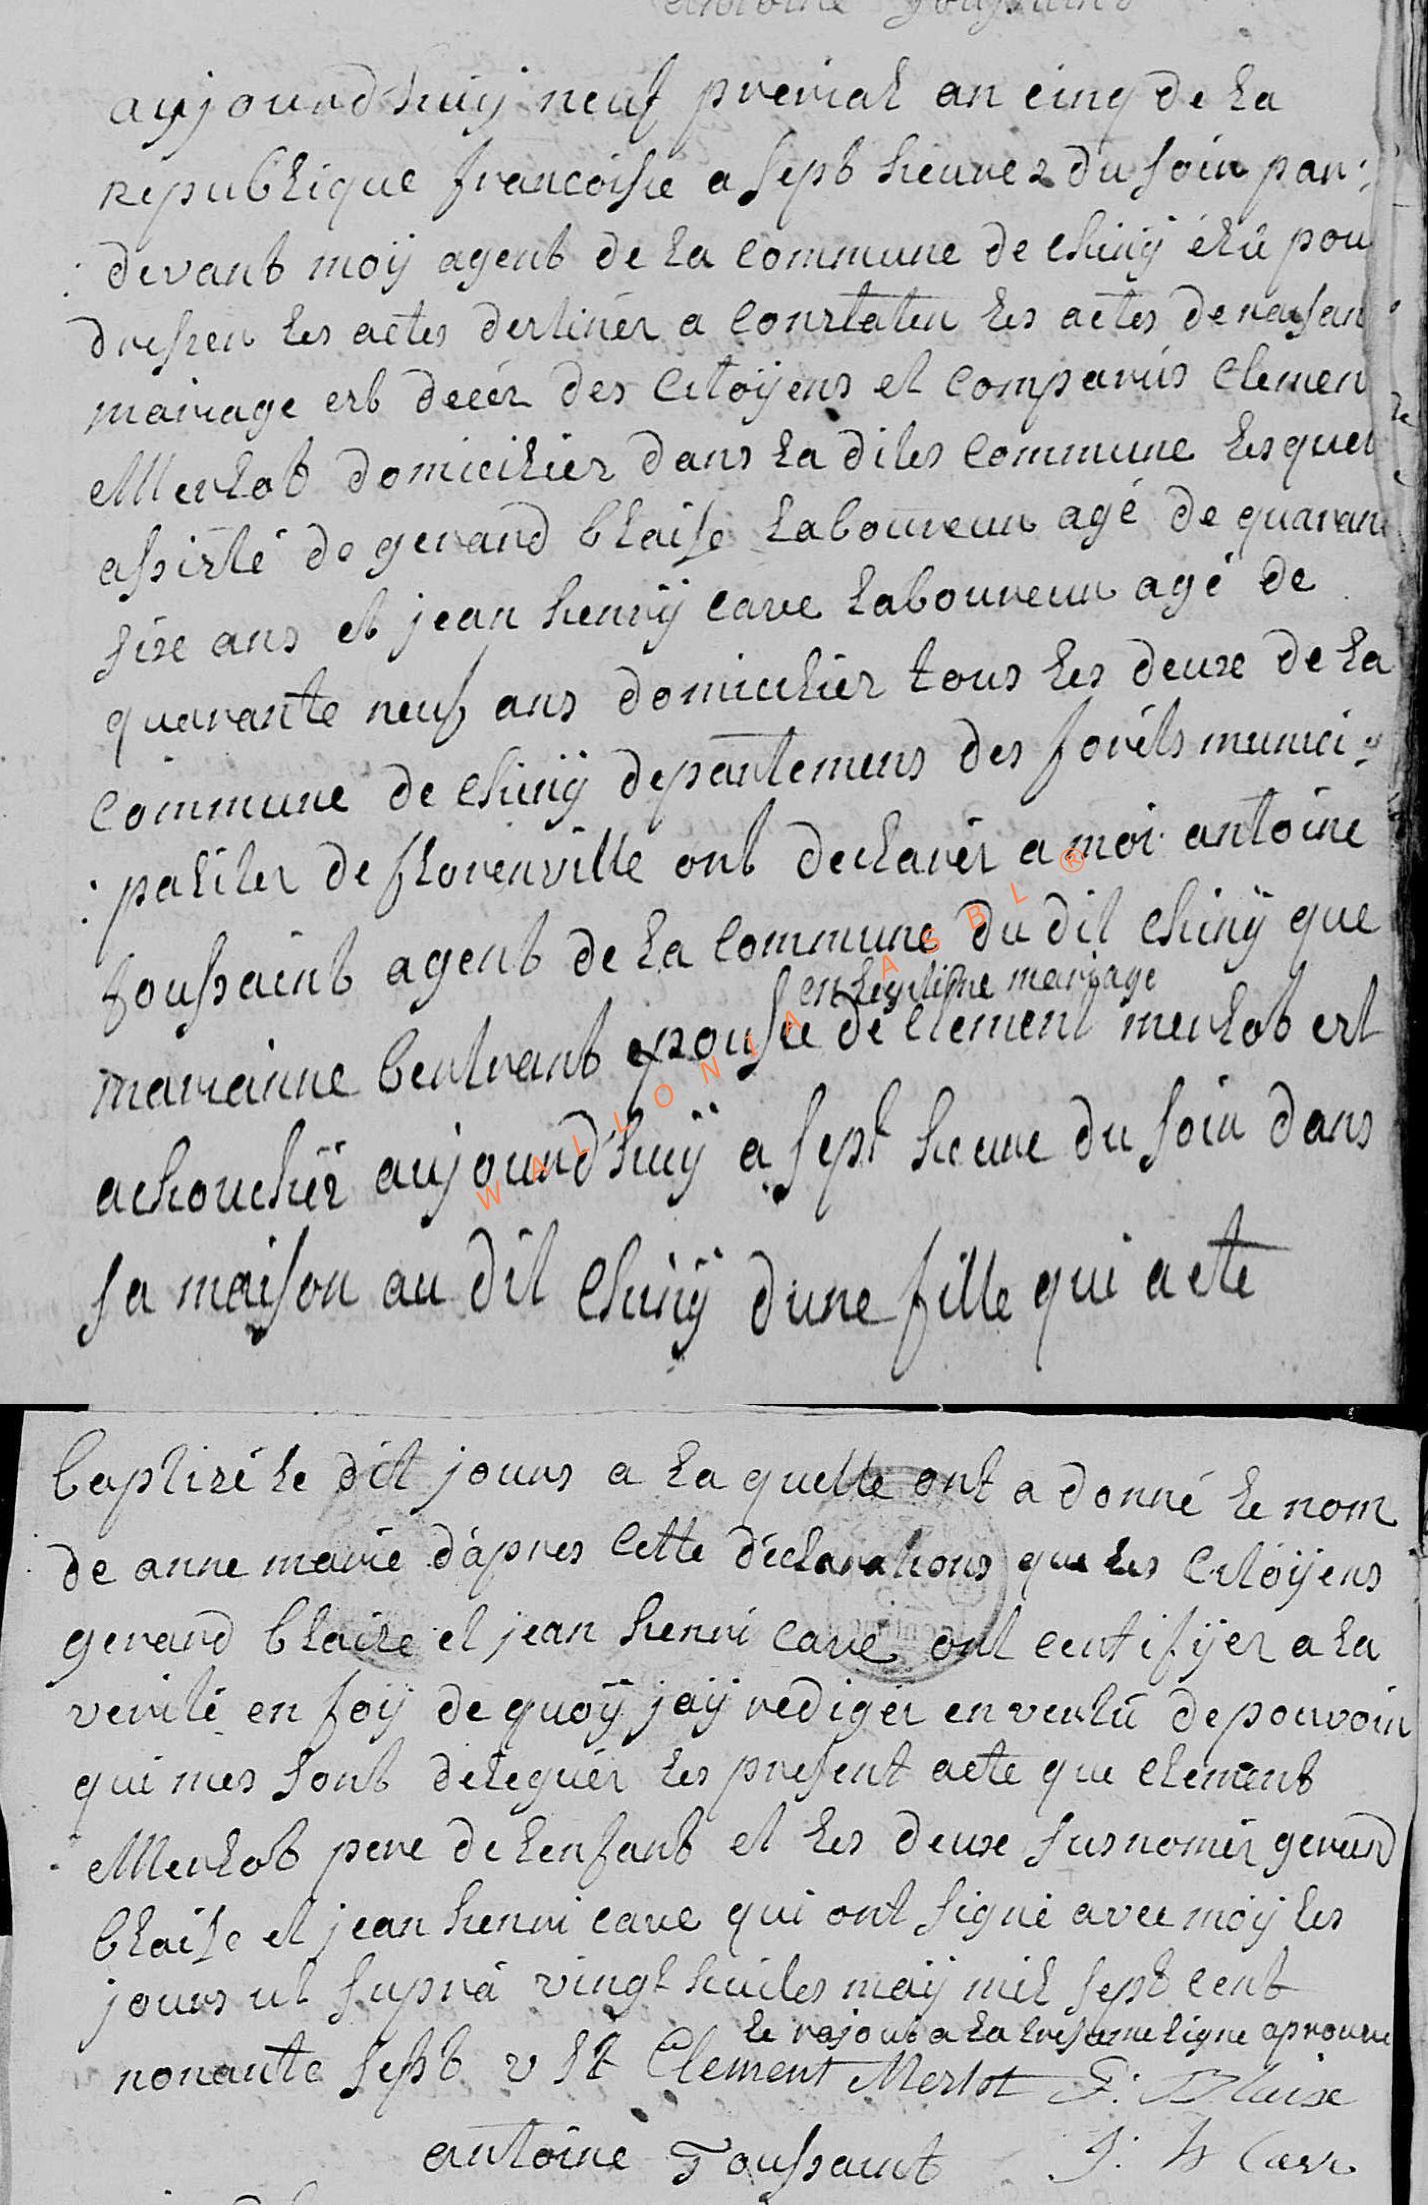 antoine Toussaint
aujourd'huij neuf prerial an cinq de la
republique francoise a sept heures du soir par:
devant moÿ agent de la commune de chinÿ élû pou
dresser les actes destinér a constater les actes de naisan
mairage est decér des citoÿens et comparûs clemen
Merlot domicilier dans la dites commune lesquel
assisté de gerard blaise laboureur agé de quaran
sixe ans et jean henrÿ cave laboureur agé de
quarante neuf ans domicilier tous les deux de la
commune de chinÿ departemens des forêts munici:
: paliter de florenville ont declarér a moi antoine
toussaint agent de la commune du dit chinÿ que
en legitime mariage
marianne bertrant epousse de clement merlot est
achouchér aujourd'huÿ a sept heure du soir dans
sa maison au dit chinÿ d'une fille qui a ete
WALLONIA ASBL ®
baptisé le dit jours a la quelle ont a donné le nom
de anne marie d'apres cette déclarations que les citoÿens
gerard blaise et jean henri cave ont certifÿer a la
verité en foÿ de quoÿ jaÿ rediger en vertû de pouvoir
qui mes sont deleguér les present acte que clement
Merlot pere de lenfant et les deux susnomér gerard
blaise et jean henri cave qui ont signé avec moÿ les
jours ut suprà vingt huites maÿ mil sept cent
le rajout a la treisame ligne aprouve
nonante sept v st Clement Merlot G: Blaise
antoine Toussaint J: h Cave